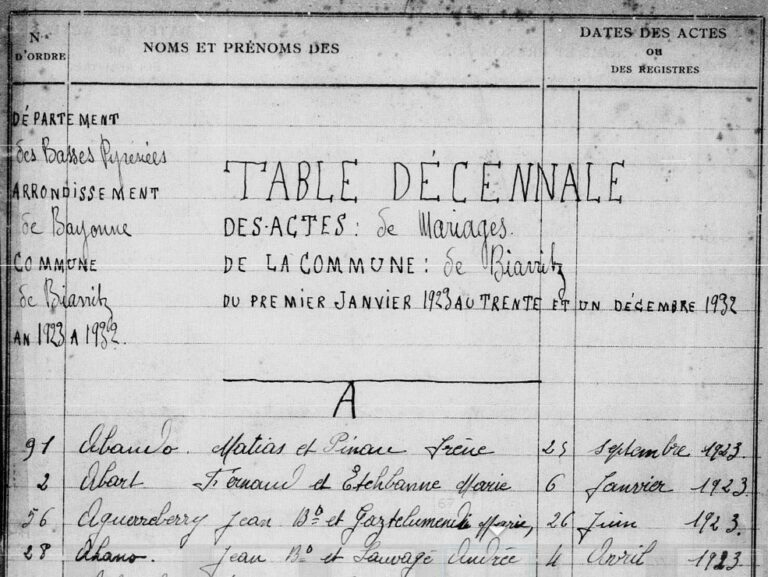 N°
D'ORDRE
NOMS ET PRÉNOMS DES
DATES DES ACTES
OU
DES REGISTRES
DÉPARTEMENT
des Basses Pyrénées
ARRONDISSEMENT
de Bayonne
COMMUNE
de Biarritz
AN 1923 A 1932.
TABLE DÉCENNALE
DES ACTES : de Mariages.
DE LA COMMUNE : de Biarritz
DU PREMIER JANVIER 1923 AU TRENTE ET UN DÉCEMBRE 1932
A
91 Abando. Matias et Pinau Irène 25 Septembre 1923.
2 Abart Fernand et Etchbanne Marie 6 Janvier 1923.
56 Aguerreberry Jean Bte et Gaztelumendi Marie, 26 Juin 1923.
28 Ahano. Jean Bte et Sauvage Andrée 4 Avril 1923